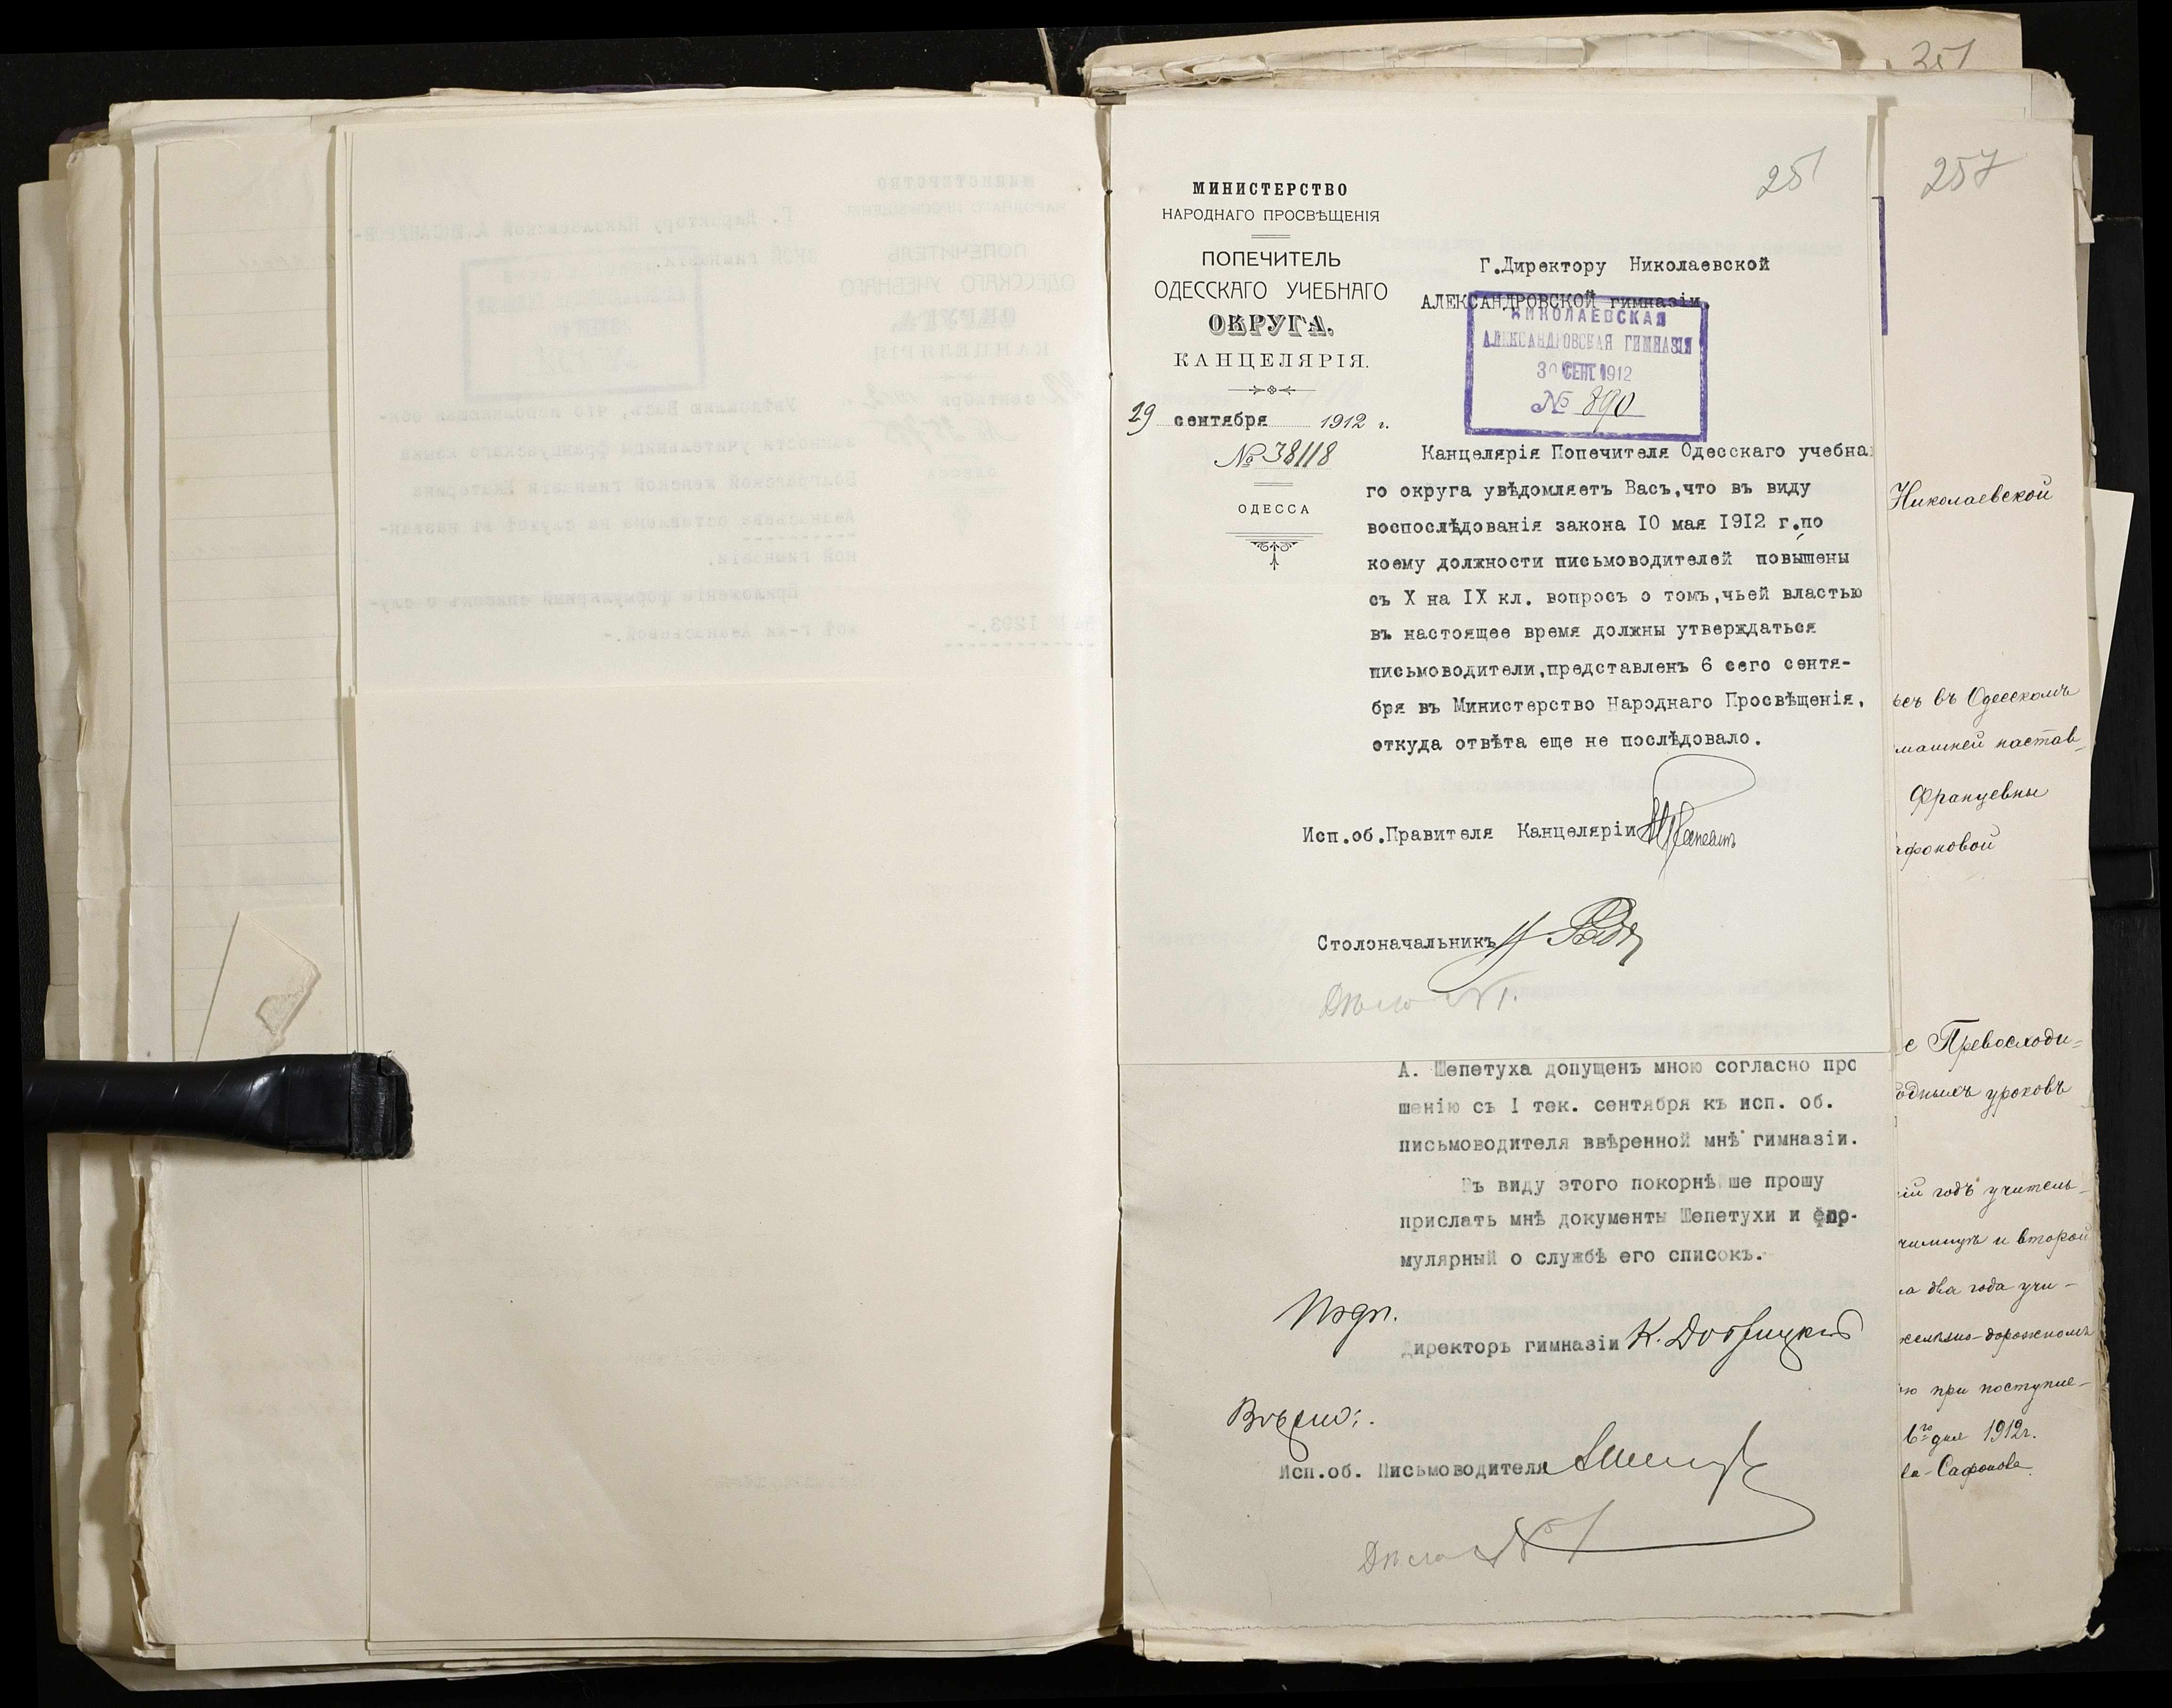 251
251
257
МИНИСТЕРСТВО
НАРОДНАГО ПРОСВѢЩЕНІЯ
ПОПЕЧИТЕЛЬ
ОДЕССКАГО УЧЕБНАГО
ОКРУГА.
КАНЦЕЛЯРІЯ.
29 сентября 1912 г.
№ 38118
ОДЕССА
Г.Директору Николаевской
АЛЕКСАНДРОВСКОЙ гимназіи.
НИКОЛАЕВСКАЯ
АЛЕКСАНДРОВСКАЯ ГИМНАЗІЯ
30 СЕНТ. 1912
№ 890
Канцелярія Попечителя Одесскаго учебна
го округа увѣдомляетъ Васъ,что въ виду
воспослѣдованія закона 10 мая 1912 г.,по
коему должности письмоводителей повышены
съ X на IX кл. вопросъ о томъ,чьей властью
въ настоящее время должны утверждаться
письмоводители,представленъ 6 сего сентя-
бря въ Министерство Народнаго Просвѣщенія,
откуда отвѣта еще не послѣдовало.
Исп.об.Правителя Канцеляріи
Столоначальникъ
Дѣло № 1.
А. Шепетуха допущенъ мною согласно про
шенію съ I тек. сентября къ исп. об.
письмоводителя ввѣренной мнѣ гимназіи.
Въ виду этого покорнѣйше прошу
прислать мнѣ документы Шепетухи и фор-
мулярный о службѣ его списокъ.
Подп.
Директоръ гимназіи К. Добрицкій
Вѣрно:
Исп.об. Письмоводителя
Дѣло № 1
Николаевской
въ Одесскомъ
машней настав-
Францевны
афоновой
е Превосходи=
одныхъ уроковъ
ій годъ учитель-
и второй
а два года учи-
желѣзно-дорожномъ
ю при поступле-
6го дня 1912г.
ва-Сафонова.